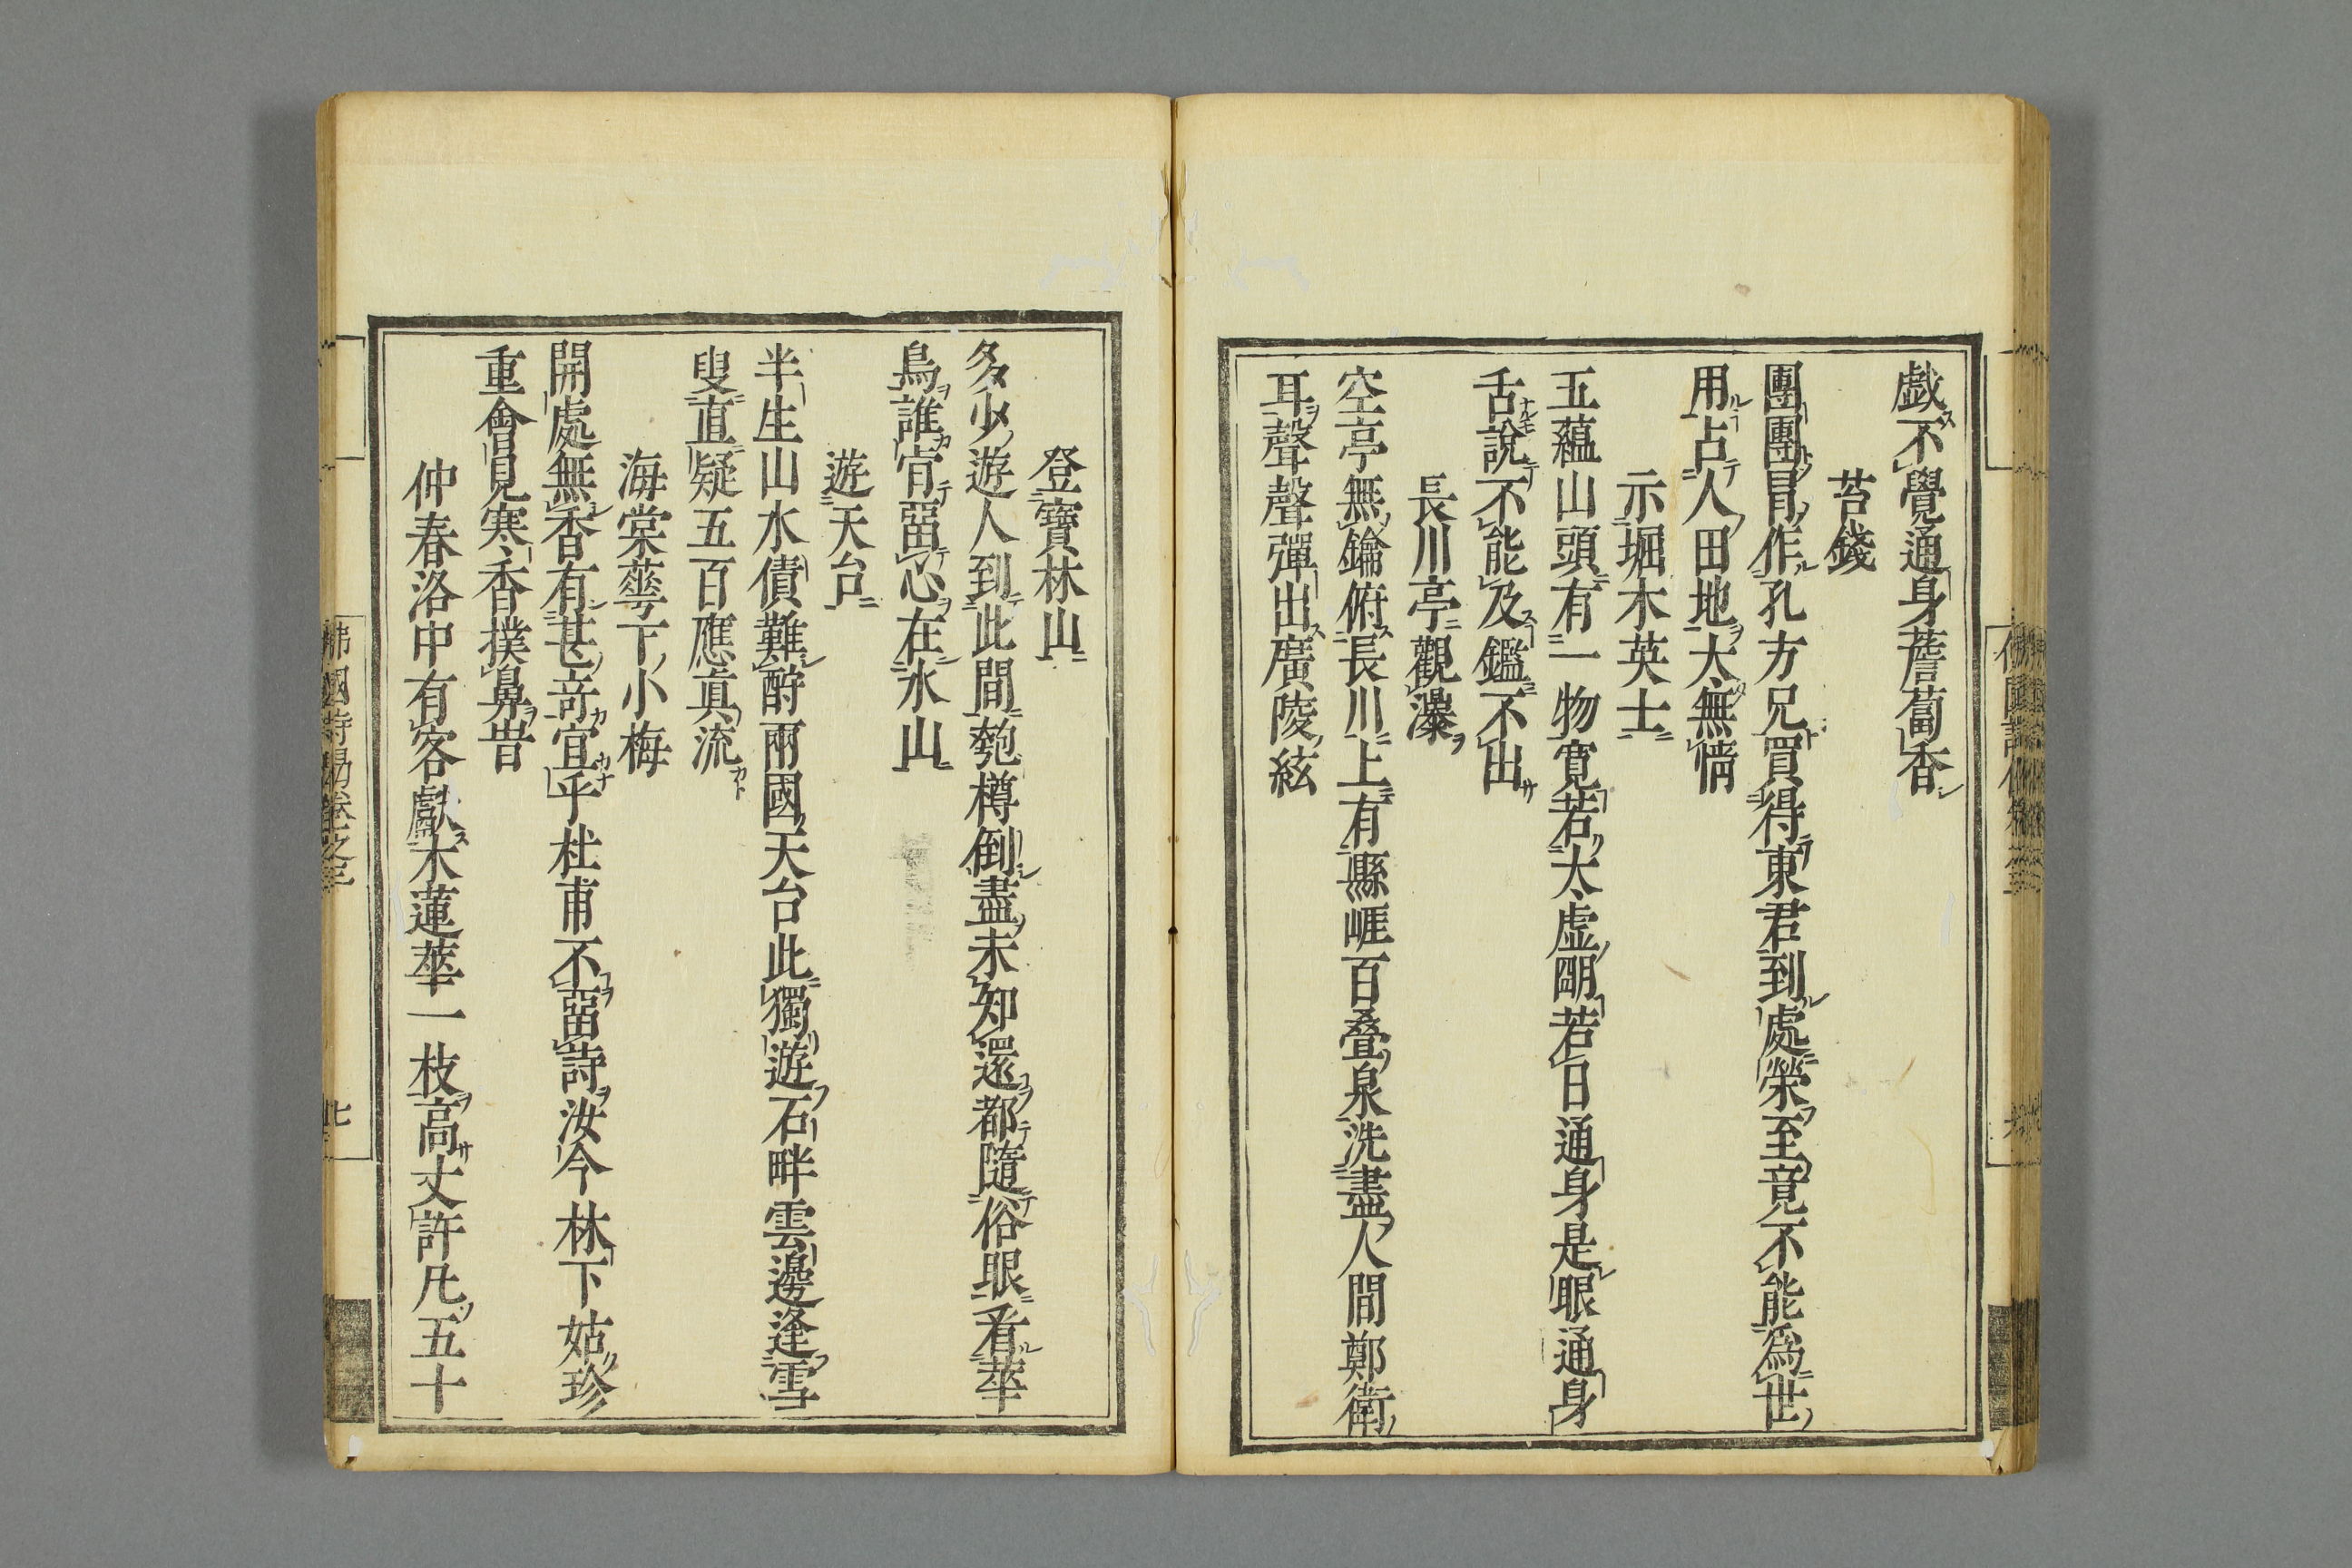 戯不覺通身薝蔔香
苔錢
團團肎作孔方兄買得東君到處榮至竟不能爲世
用占人田地太無情
示堀木英士
五蘊山頭有一物寛若太虚朙若日通身是眼通身
舌說不能及鑑不出
長川亭觀瀑
空亭無鑰俯長川上有縣崕百叠泉洗盡人間鄭衛
耳聲聲彈出廣陵絃
登寶林山
多少遊人到此間匏樽倒盡未知還都隨俗眼看華
鳥誰肯畱心在水山
遊天台
半生山水債難酧兩國天台此獨遊石畔雲邊逢雪
叟直疑五百應眞流
海棠蕚下小梅
開處無香有甚竒宜乎杜甫不畱詩汝今林下姑珍
重會見寒香撲鼻旹
仲春洛中有客獻木蓮華一枝高丈許凡五十